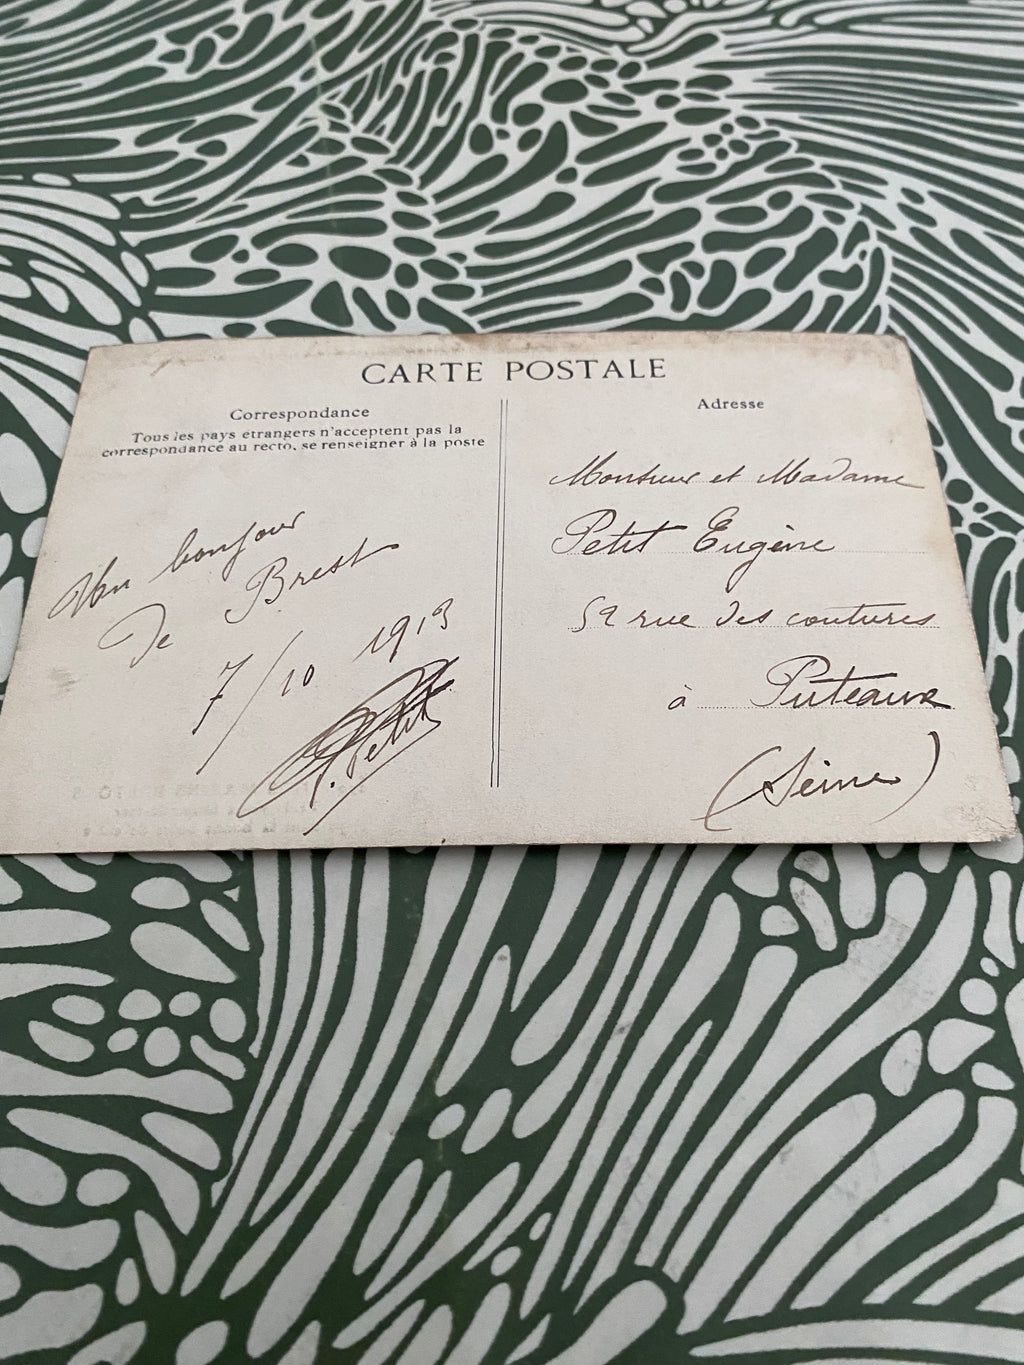 CARTE POSTALE
Correspondance
Tous les pays étrangers n'acceptent pas la
correspondance au recto, se renseigner à la poste
Un bonjour
de Brest
7/10 1913
Petit
Adresse
Monsieur et Madame
Petit Eugène
52 rue des coutures
à Puteaux
(Seine)